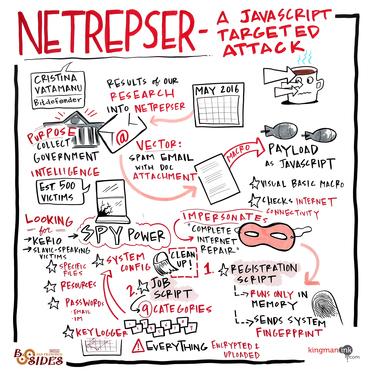 NETREPSER - A JAVASCRIPT
TARGETED
ATTACK
CRISTINA
VATAMANU
Bitdefender
RESULTS OF OUR
RESEARCH
INTO NETREPSER
MAY 2016
PURPOSE
COLLECT
GOVERNMENT
INTELLIGENCE
EST 500
VICTIMS
@
VECTOR:
SPAM EMAIL
WITH DOC
ATTACHMENT
MACRO
PAYLOAD
AS JAVASCRIPT
VISUAL BASIC MACRO
CHECKS INTERNET
CONNECTIVITY
LOOKING
for
KERIO
SLAVIC-SPEAKING
VICTIMS
SPECIFIC
FILES
RESOURCES
PASSWORDS
EMAIL
IM
KEYLOGGER
SPY POWER
SYSTEM
CONFIG
CLEAN
UP!
IMPERSONATES
"COMPLETE
INTERNET
REPAIR"
1. REGISTRATION
SCRIPT
RUNS ONLY IN
MEMORY
SENDS SYSTEM
FINGERPRINT
2. JOB
SCRIPT
9 CATEGORIES
! EVERYTHING ENCRYPTED &
UPLOADED
BSIDES
kingmanink
.com